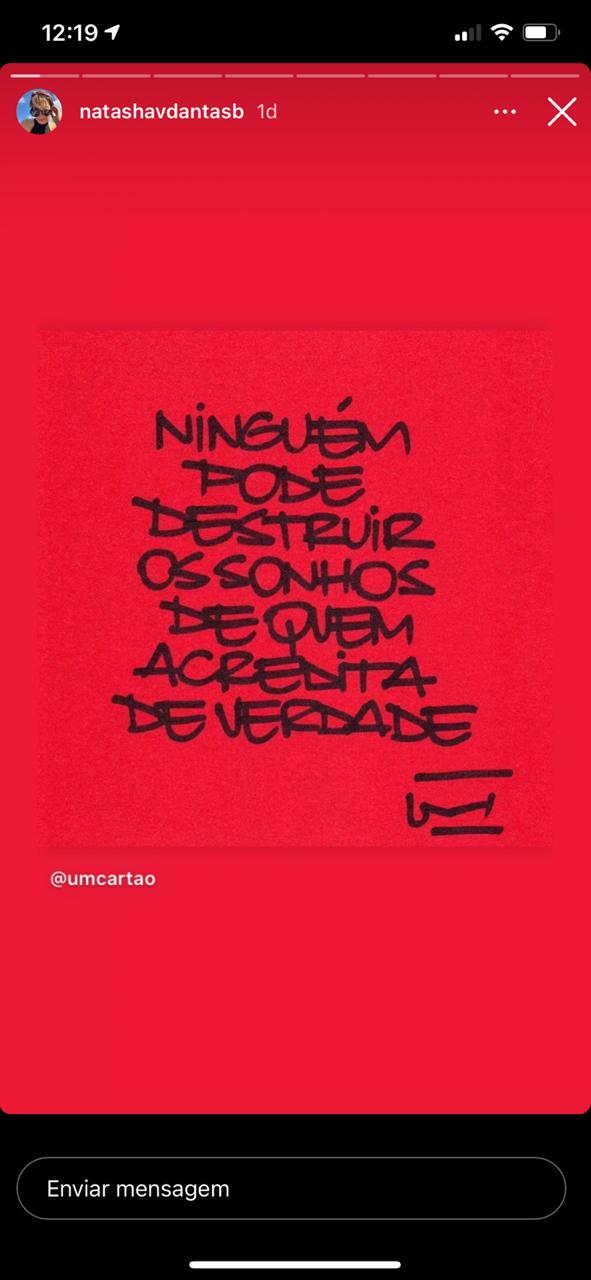 12:19
natashavdantasb 1d
NINGUÉM
PODE
DESTRUIR
OS SONHOS
DE QUEM
ACREDITA
DE VERDADE
UM
@umcartao
Enviar mensagem